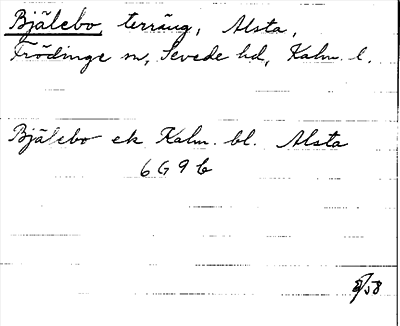 Bjälebo, terräng, Alsta,
Frödinge sn, Sevede hd, Kalm. l.
Bjälebo ek Kalm. bl. Alsta
6 G 9 b